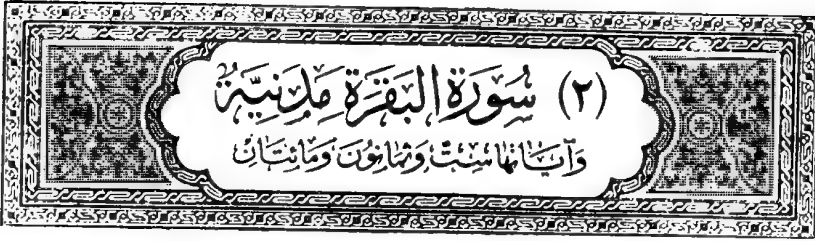 (٢) سُورَةُ البَقَرَةِ مَدَنِيَّةٌ
وَآيَاتُهَا سِتٌّ وَثَمَانُونَ وَمَائتَانِ